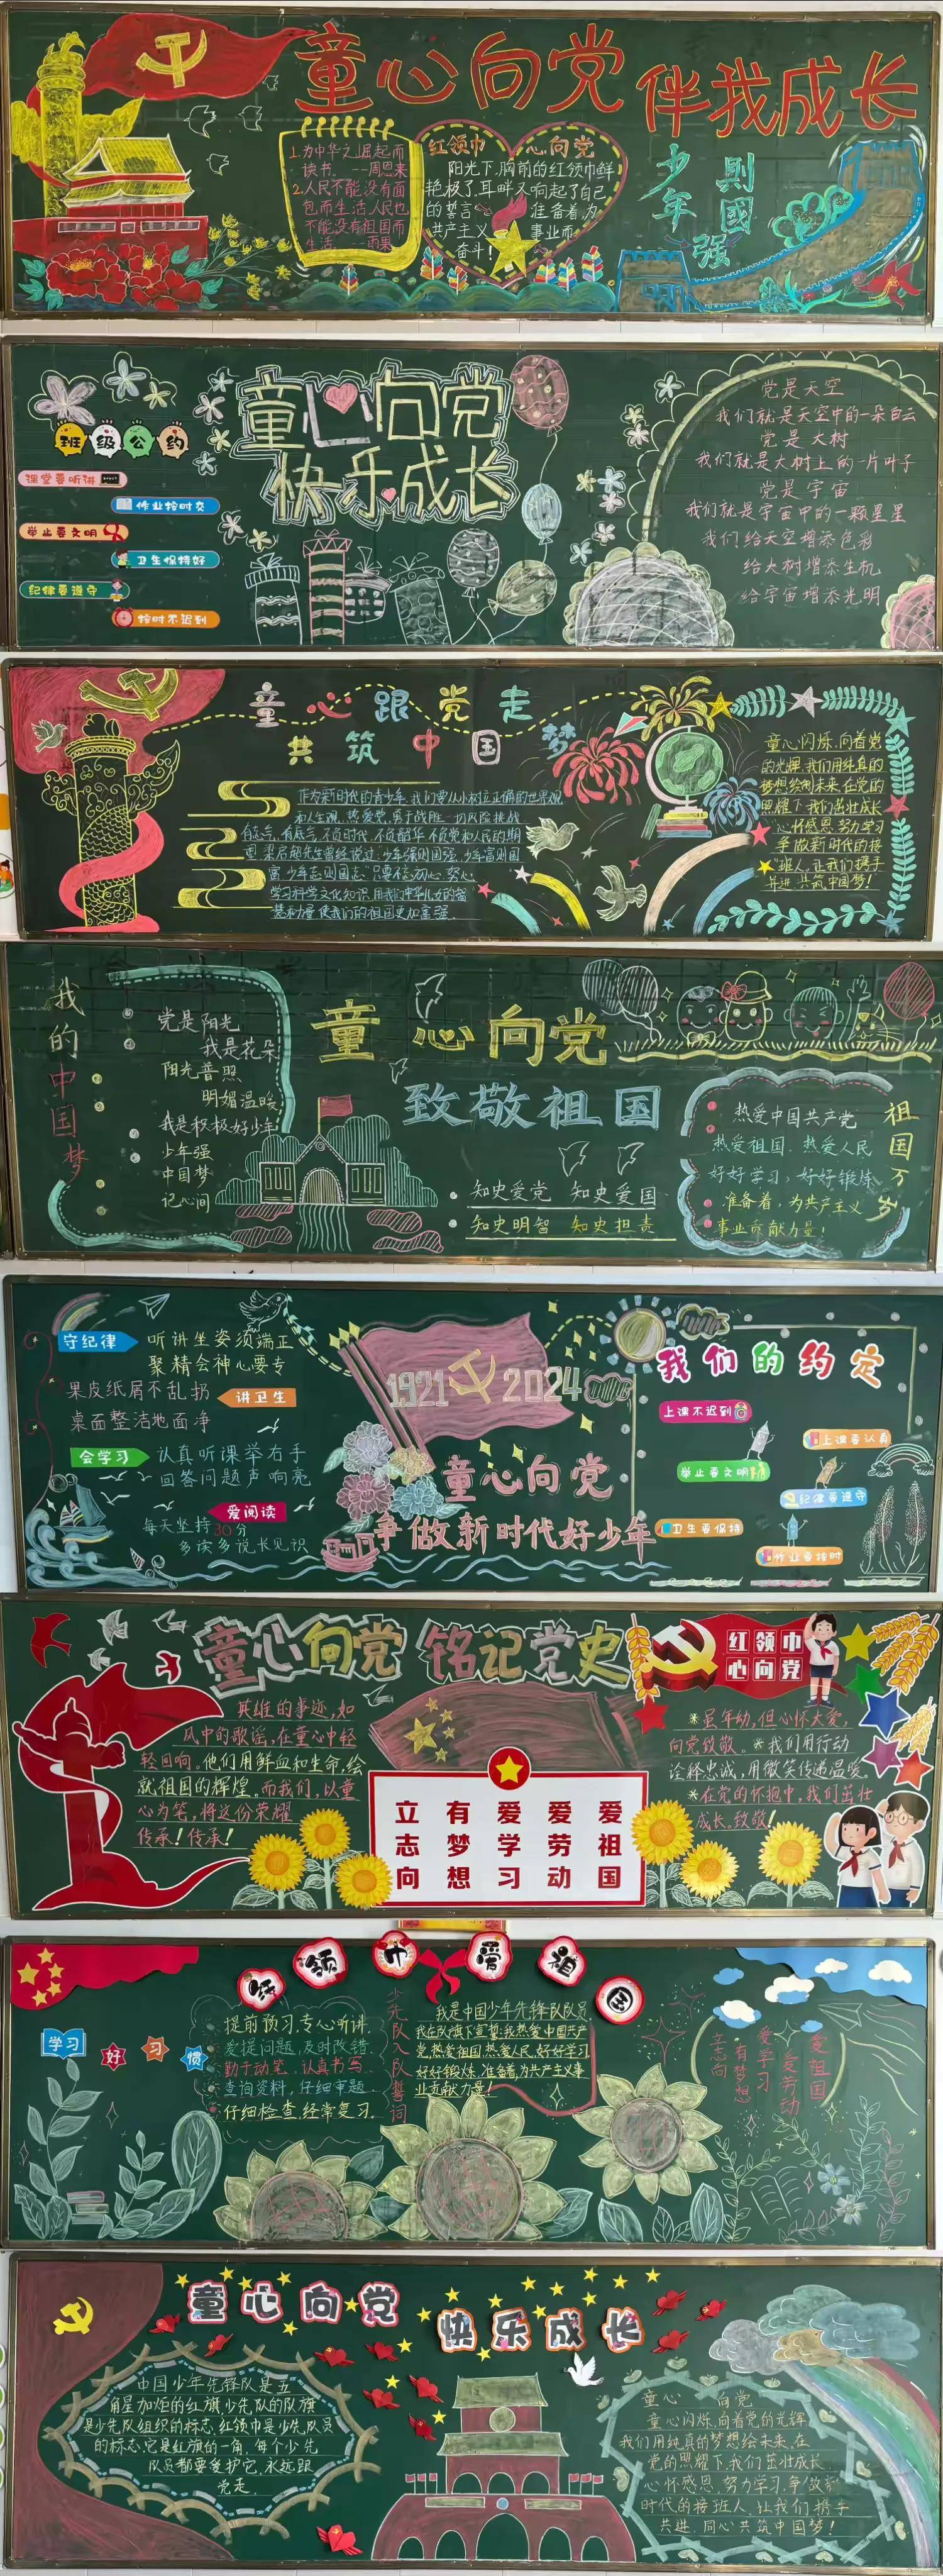 童心向党 伴我成长
1.为中华之崛起而
读书。--周恩来
2.人民不能没有面
包而生活,人民也
不能没有祖国而
生活。--雨果
红领巾 心向党
阳光下,胸前的红领巾鲜
艳极了,耳畔又响起了自己
的誓言 准备着,为
共产主义 事业而
奋斗!
少年強
則國
童心向党
快乐成长
班级公约
课堂要听讲
作业按时交
举止要文明
卫生保持好
纪律要遵守
按时不迟到
党是天空
我们就是天空中的一朵白云
党是大树
我们就是大树上的一片叶子
党是宇宙
我们就是宇宙中的一颗星星
我们给天空增添色彩
给大树增添生机
给宇宙增添光明
童心跟党走
共筑中国梦
作为新时代的青少年,我们要从小树立正确的世界观
和人生观,热爱党,勇于战胜一切风险挑战
有志气,有底气,不负时代,不负韶华,不负党和人民的期
望,梁启超先生曾经说过:少年强则国强,少年富则国
富,少年志则国志。只要信心,努力
学习科学文化知识,用我们中华儿女的智
慧和力量,使我们的祖国更加富强.
童心闪烁,向着党
的光辉,我们用纯真的
梦想绘制未来,在党的
照耀下,我们茁壮成长
心怀感恩,努力学习
争做新时代的接
班人,让我们携手
并进,共筑中国梦!
我的中国梦
党是阳光
我是花朵
阳光普照
明媚温暖
我是积极好少年
少年强
中国梦
记心间
童心向党
致敬祖国
知史爱党 知史爱国
知史明智 知史担责
热爱中国共产党
热爱祖国、热爱人民
好好学习,好好锻炼
准备着,为共产主义
事业贡献力量!
祖国万岁
守纪律
听讲坐姿须端正
聚精会神心要专
果皮纸屑不乱扔
讲卫生
桌面整洁地面净
会学习
认真听课举右手
回答问题声响亮
爱阅读
每天坚持30分
多读多说长见识
1921 2024
童心向党
争做新时代好少年
我们的约定
上课不迟到
上课要认真
举止要文明
纪律要遵守
卫生要保持
作业要按时
童心向党 铭记党史
英雄的事迹,如
风中的歌谣,在童心中轻
轻回响。他们用鲜血和生命,绘
就祖国的辉煌。而我们,以童
心为笔,将这份荣耀
传承!传承!
立志向
有梦想
爱学习
爱劳动
爱祖国
红领巾
心向党
*虽年幼,但心怀大爱,
向党致敬。*我们用行动
诠释忠诚,用微笑传递温暖。
*在党的怀抱中,我们茁壮
成长。致敬!
红领巾爱祖国
学习好习惯
提前预习,专心听讲
爱提问题,及时改错.
勤于动笔、认真书写.
查询资料,仔细审题.
仔细检查,经常复习.
少先队入队誓词
我是中国少年先锋队队员
我在队旗下宣誓:我热爱中国共产
党,热爱祖国,热爱人民,好好学习
好好锻炼,准备着,为共产主义事
业贡献力量!
立志向
有梦想
爱学习
爱劳动
爱祖国
童心向党 快乐成长
中国少年先锋队是五
角星加炬的红旗,少先队的队旗
是少先队组织的标志,红领巾是少先队员
的标志,它是红旗的一角,每个少先
队员都要爱护它,永远跟
党走.
童心 向党
童心闪烁,向着党的光辉
我们用纯真的梦想绘未来,在
党的照耀下,我们茁壮成长
心怀感恩,努力学习,争做新
时代的接班人,让我们携手
共进,同心共筑中国梦!